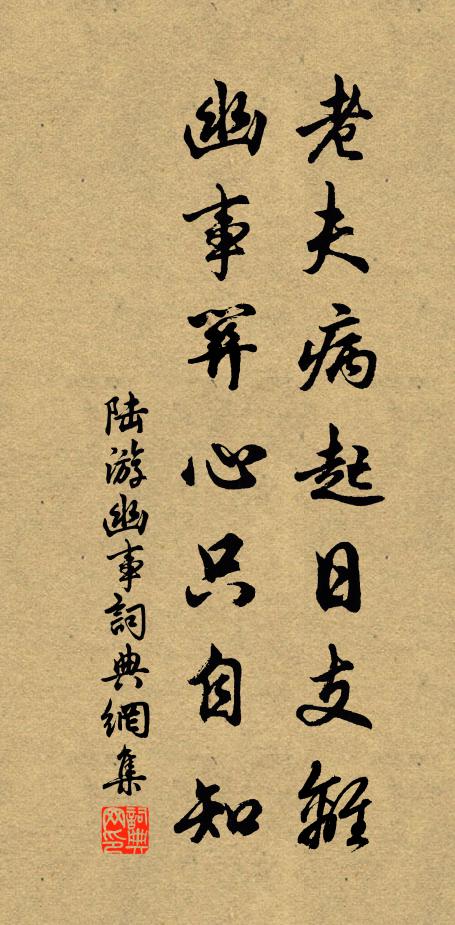 老夫病起日支離
幽事關心只自知
陆游幽事詞典網集
詞典网印